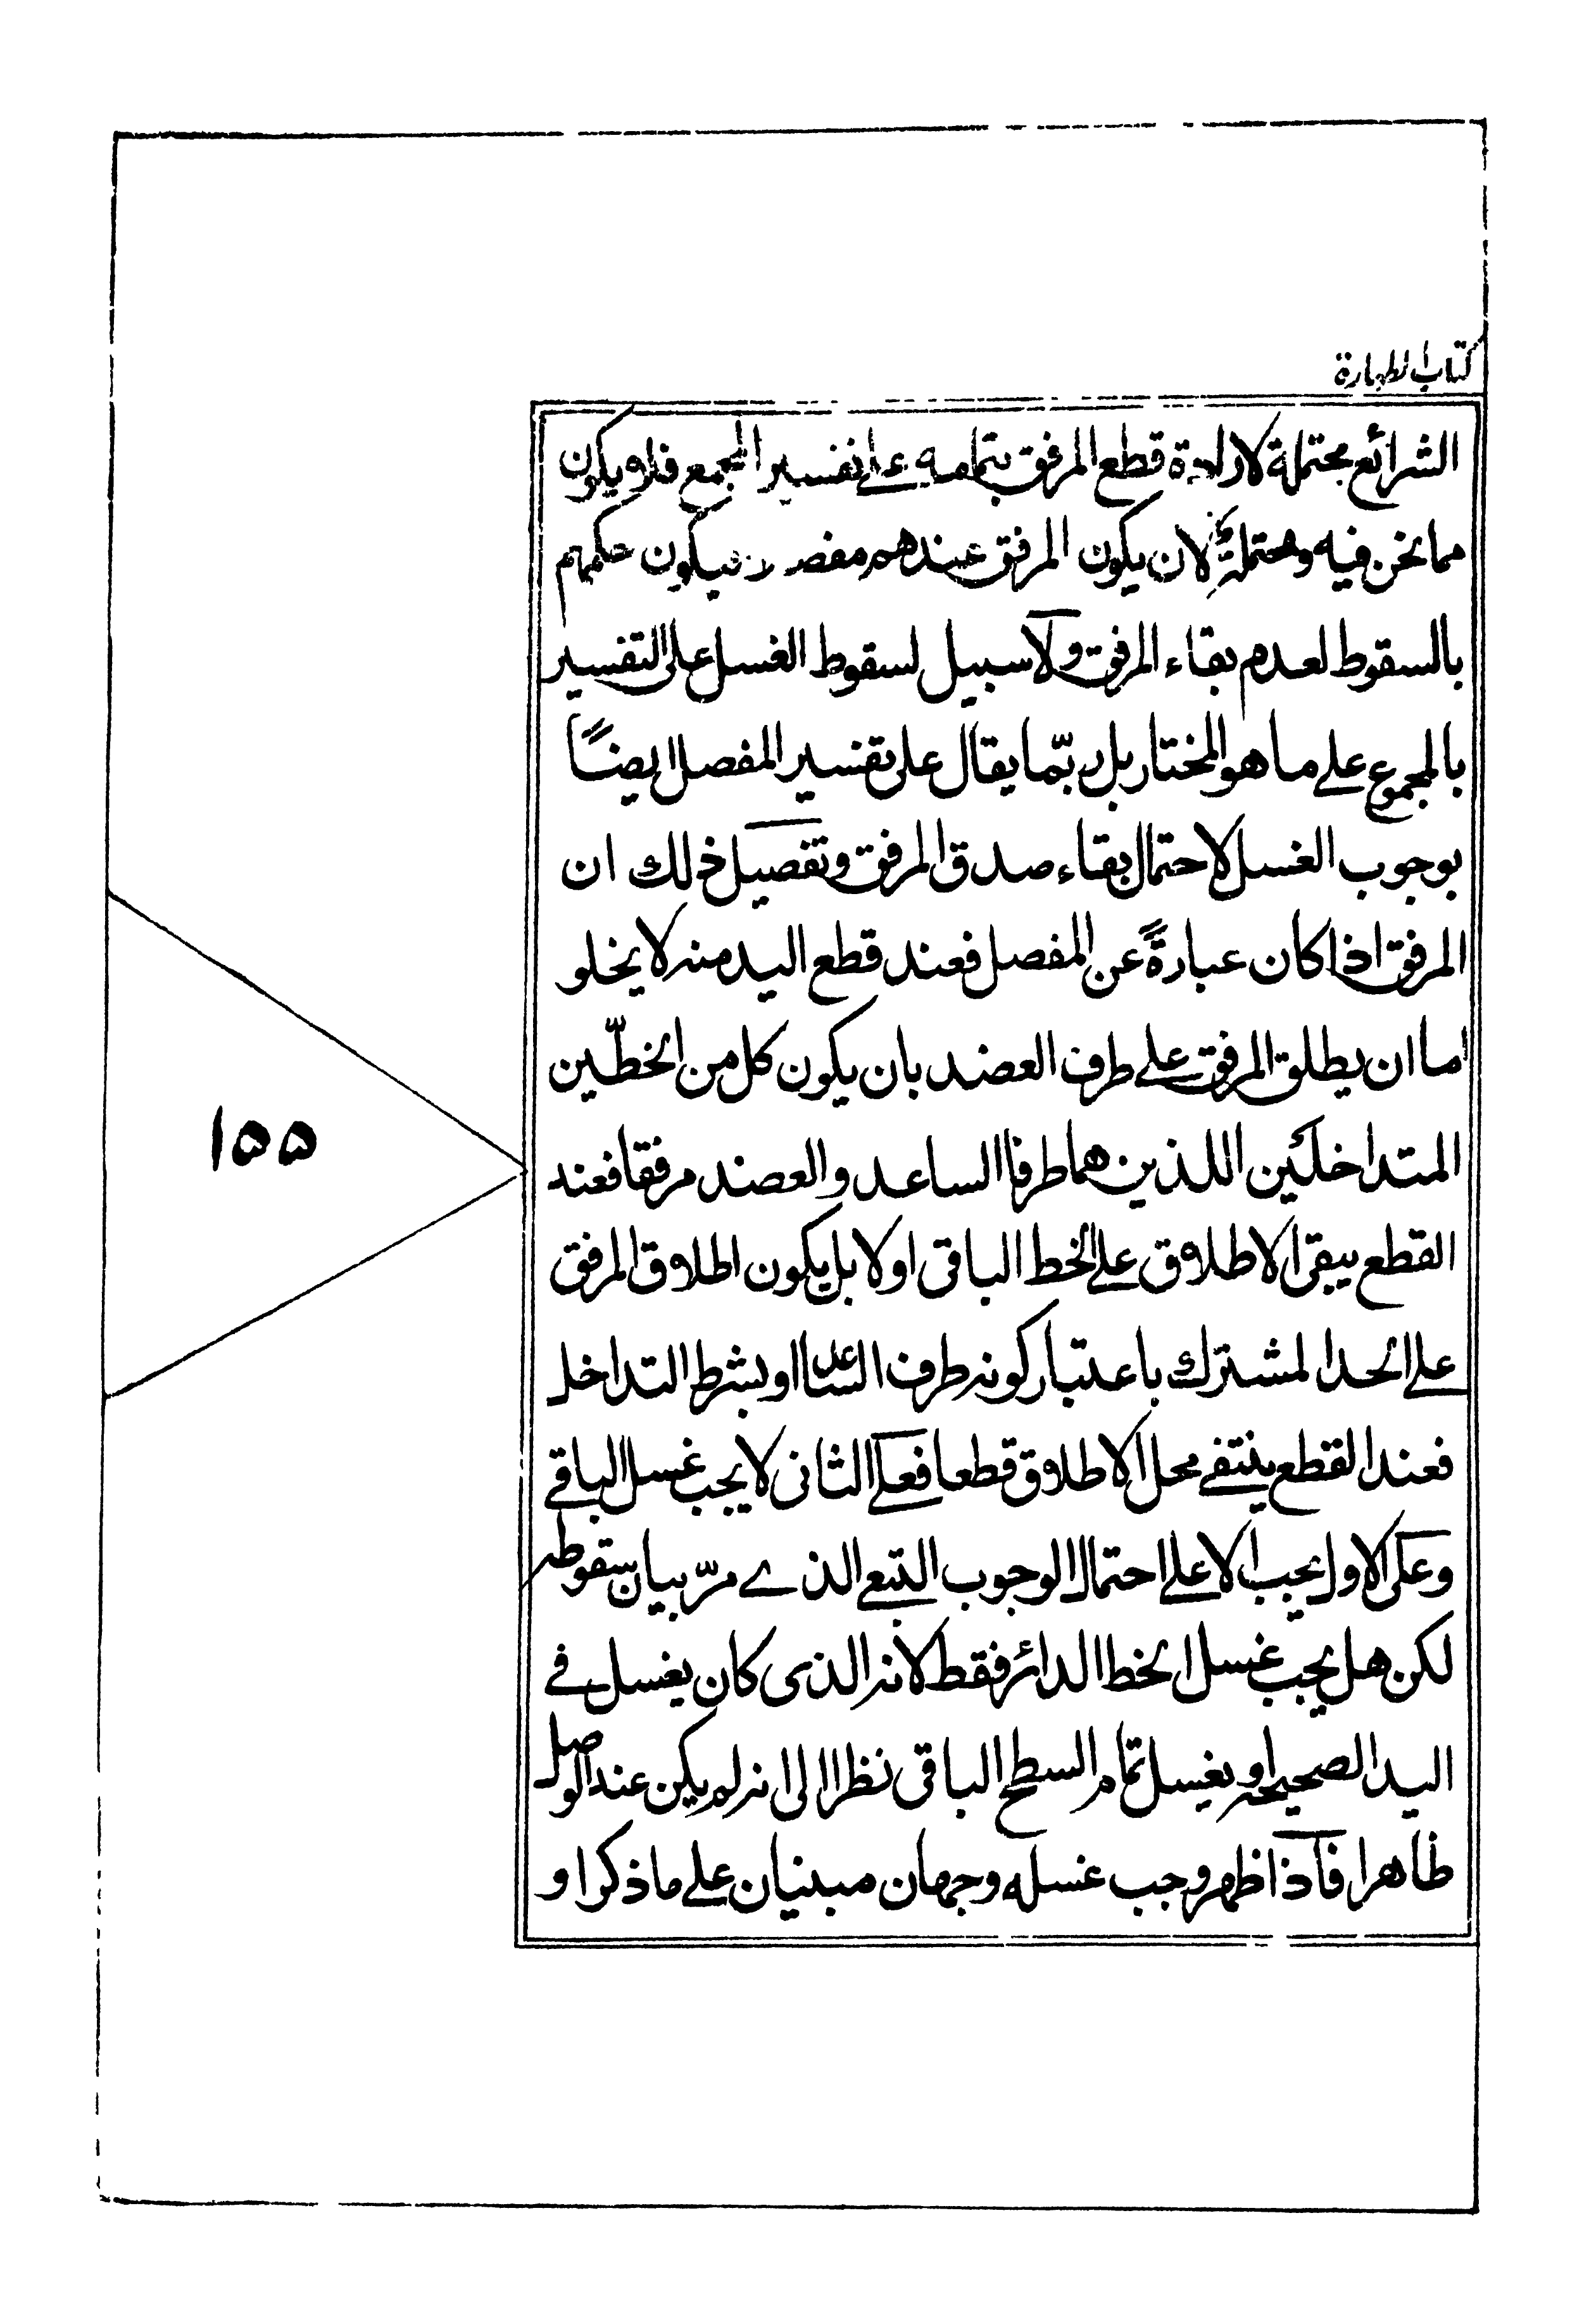 كتاب الطهارة
الشرائع محتملة لارادة قطع المرفق بتمامه على تفسير المجمع فلا يكون
مما نحن فيه ومحتملة لان يكون المرفق عندهم مفصلا فيكون حكمهم
بالسقوط لعدم بقاء المرفق ولا سبيل لسقوط الغسل على التفسير
بالمجموع على ما هو المختار بل ربّما يقال على تفسير المفصل ايضًا
بوجوب الغسل لاحتمال بقاء صدق المرفق وتفصيل ذلك ان
المرفق اذا كان عبارةً عن المفصل فعند قطع اليد منه لا يخلو
اما ان يطلق المرفق على طرف العضد بان يكون كل من الخطّين
المتداخلين اللذين هما طرفا الساعد والعضد مرفقا فعند
القطع يبقى الاطلاق على الخط الباقى اولا بل يكون اطلاق المرفق
على الحد المشترك باعتبار كونه طرف الساعد او بشرط التداخل
فعند القطع ينتفى محل الاطلاق قطعا فعلى الثانى لا يجب غسل الباقى
وعلى الاول يجب الا على احتمال الوجوب التبعى الذى مرّ بيان سقوطه
لكن هل يجب غسل الخط الدائر فقط لانه الذى كان يغسل فى
اليد الصحيحة او يغسل تمام السطح الباقى نظرا الى انه لم يكن عند الوصل
ظاهرا فاذا ظهر وجب غسله وجهان مبنيان على ما ذكر او
۱۵۵